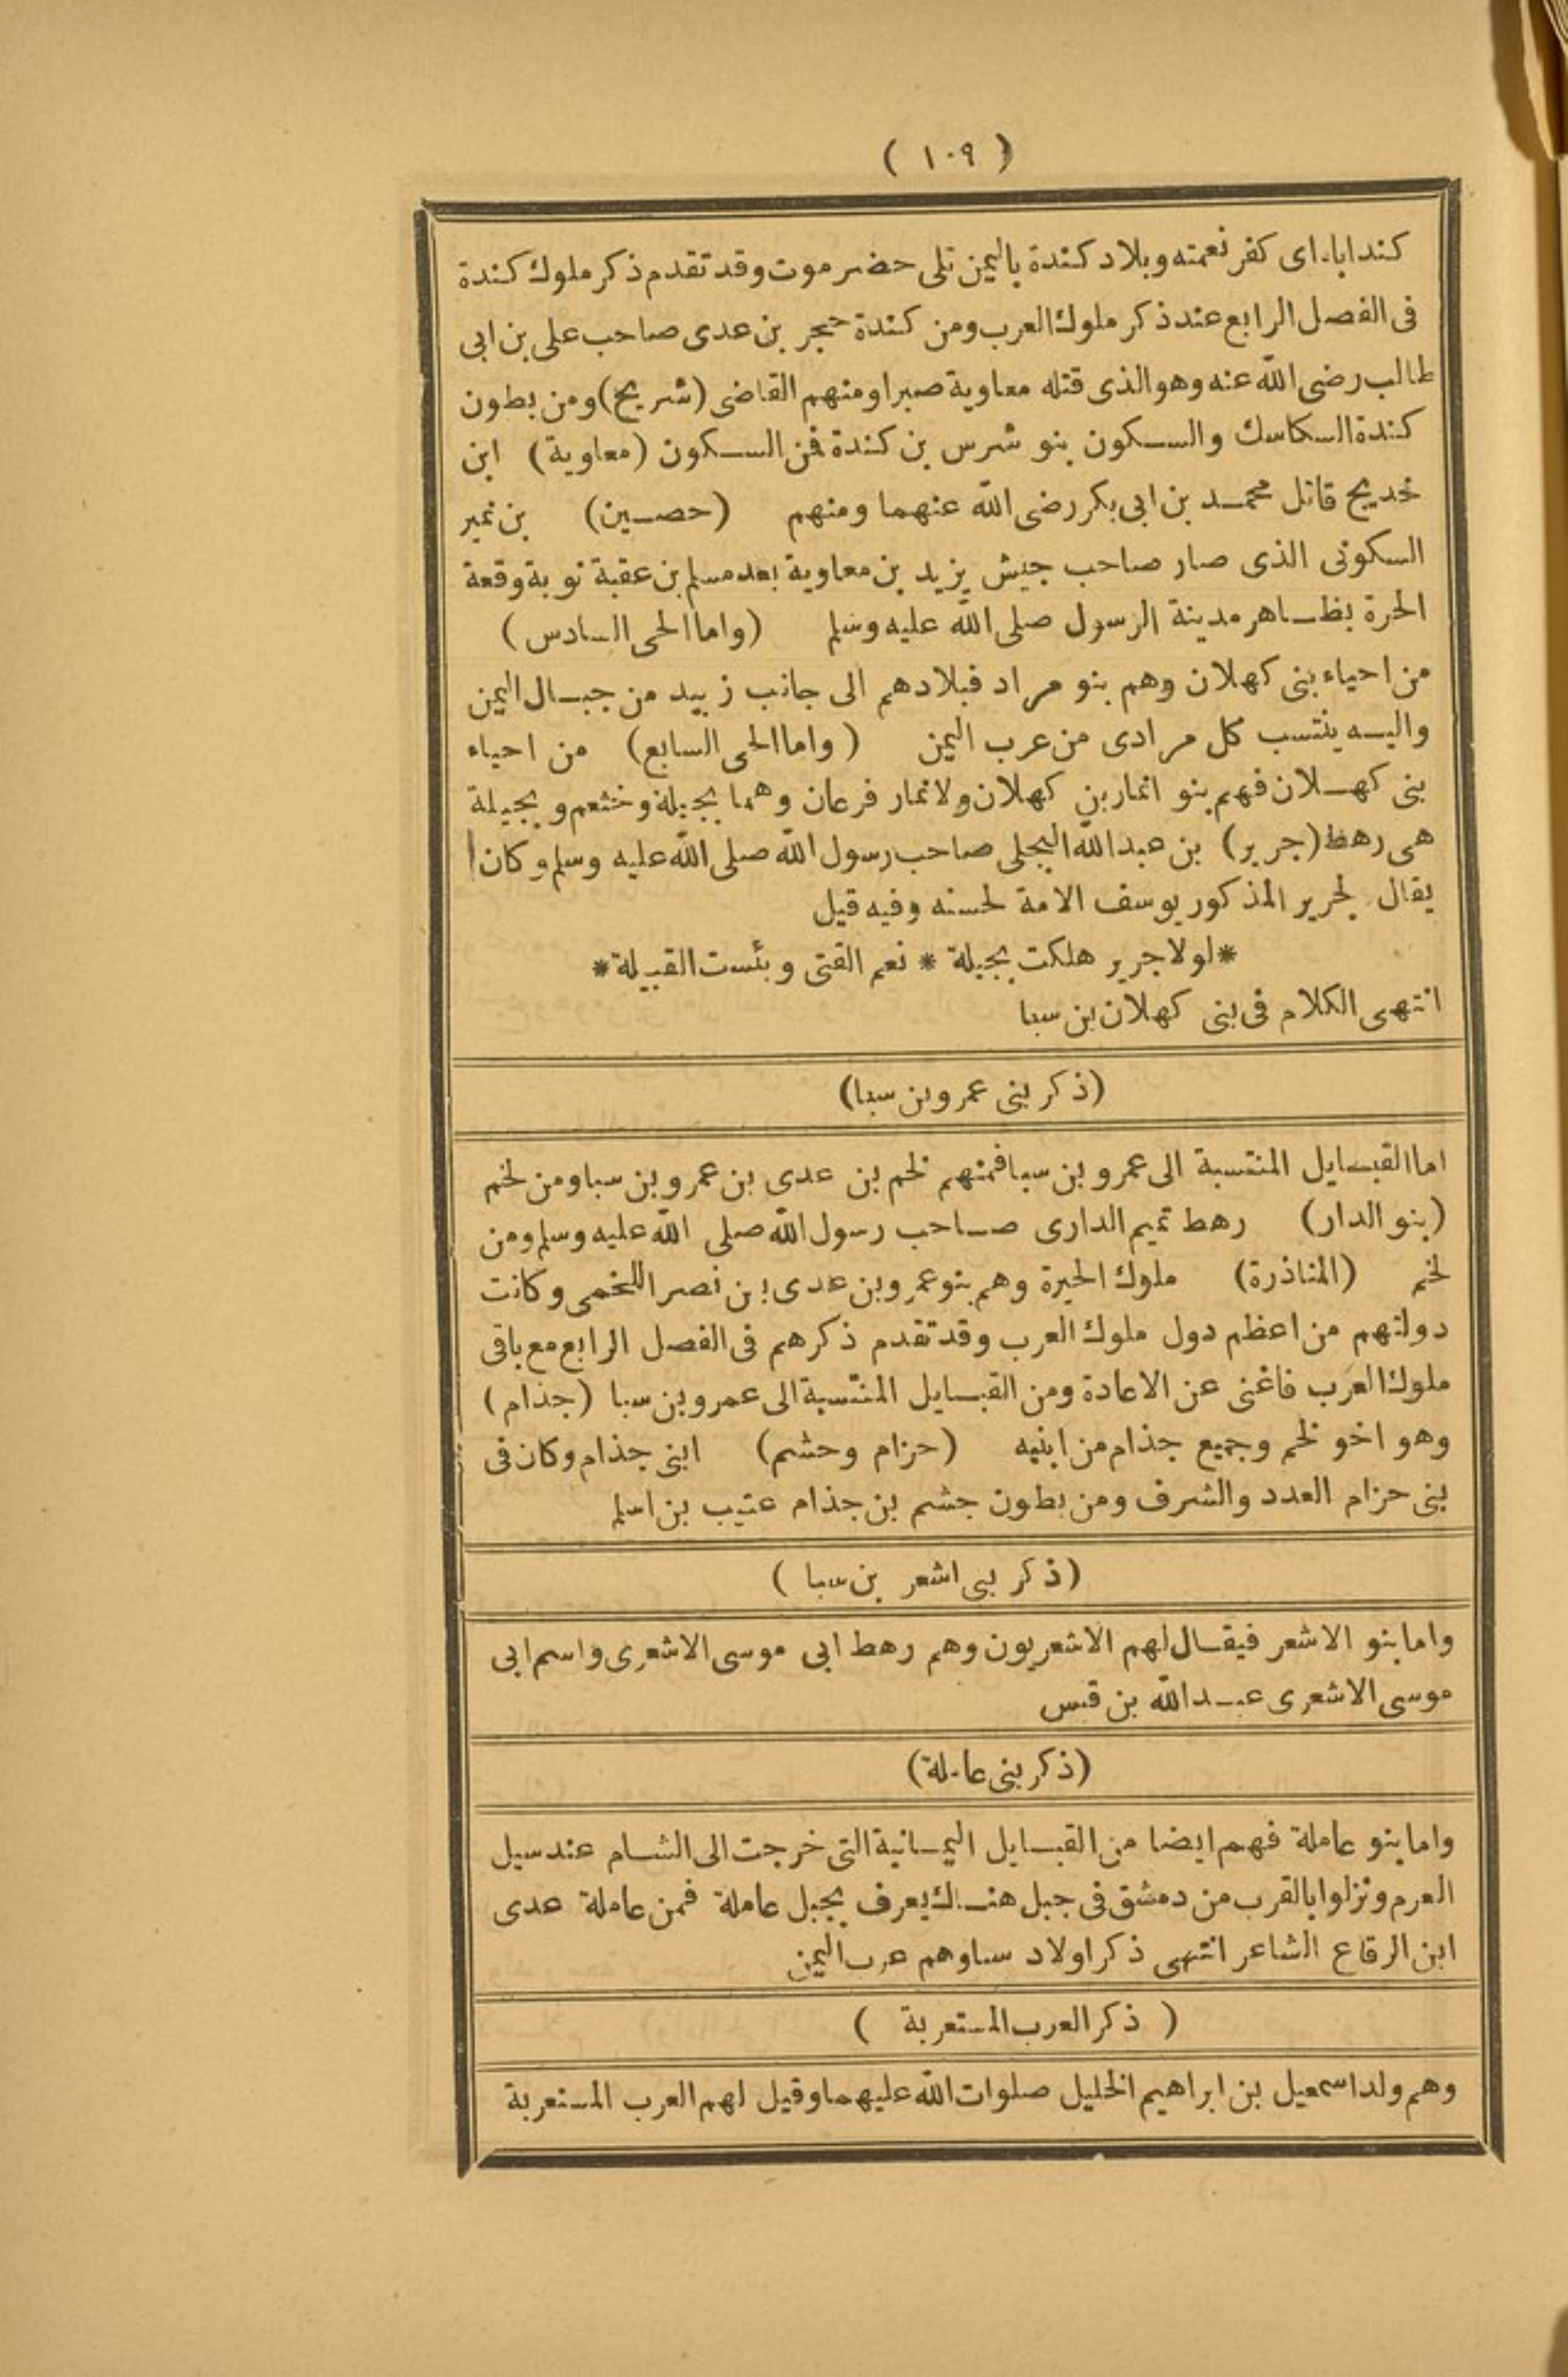 ( ١٠٩ )
كنداباه اى كفر نعمته وبلاد كندة باليمن تلى حضر موت وقد تقدم ذكر ملوك كندة
فى الفصل الرابع عند ذكر ملوك العرب ومن كندة حجر بن عدى صاحب على بن ابى
طالب رضى الله عنه وهو الذى قتله معاوية صبرا ومنهم القاضى (شريح) ومن بطون
كندة السكاسك والسكون بنو شرس بن كندة فمن السكون (معاوية) ابن
خديج قاتل محمد بن ابى بكر رضى الله عنهما ومنهم (حصين) بن نمير
السكونى الذى صار صاحب جيش يزيد بن معاوية بعد مسلم بن عقبة نوبة وقعة
الحرة بظاهر مدينة الرسول صلى الله عليه وسلم (واما الحى السادس)
من احياء بنى كهلان وهم بنو مراد فبلادهم الى جانب زبيد من جبال اليمن
واليه ينتسب كل مرادى من عرب اليمن (واما الحى السابع) من احياء
بنى كهلان فهم بنو انمار بن كهلان ولانمار فرعان وهما بجيلة وخثعم وبجيلة
هى رهط (جرير) بن عبدالله البجلى صاحب رسول الله صلى الله عليه وسلم وكان
يقال لجرير المذكور يوسف الامة لحسنه وفيه قيل
*لولا جرير هلكت بجيلة * نعم الفتى وبئست القبيلة*
انتهى الكلام فى بنى كهلان بن سبا
(ذكر بنى عمرو بن سبا)
اما القبايل المنتسبة الى عمرو بن سبا فمنهم لخم بن عدى بن عمرو بن سبا ومن لخم
(بنو الدار) رهط تميم الدارى صاحب رسول الله صلى الله عليه وسلم ومن
لخم (المناذرة) ملوك الحيرة وهم بنو عمرو بن عدى بن نصر اللخمى وكانت
دولتهم من اعظم دول ملوك العرب وقد تقدم ذكرهم فى الفصل الرابع مع باقى
ملوك العرب فاغنى عن الاعادة ومن القبايل المنتسبة الى عمرو بن سبا (جذام)
وهو اخو لخم وجميع جذام من ابنيه (حزام وحشم) ابنى جذام وكان فى
بنى حزام العدد والشرف ومن بطون جشم بن جذام عتيب بن اسلم
(ذكر بنى اشعر بن سبا)
واما بنو الاشعر فيقال لهم الاشعريون وهم رهط ابى موسى الاشعرى واسم ابى
موسى الاشعرى عبدالله بن قيس
(ذكر بنى عاملة)
واما بنو عاملة فهم ايضا من القبايل اليمانية التى خرجت الى الشام عند سيل
العرم ونزلوا بالقرب من دمشق فى جبل هناك يعرف بجبل عاملة فمن عاملة عدى
ابن الرقاع الشاعر انتهى ذكر اولاد سبا وهم عرب اليمن
( ذكر العرب المستعربة )
وهم ولد اسمعيل بن ابراهيم الخليل صلوات الله عليهما وقيل لهم العرب المستعربة